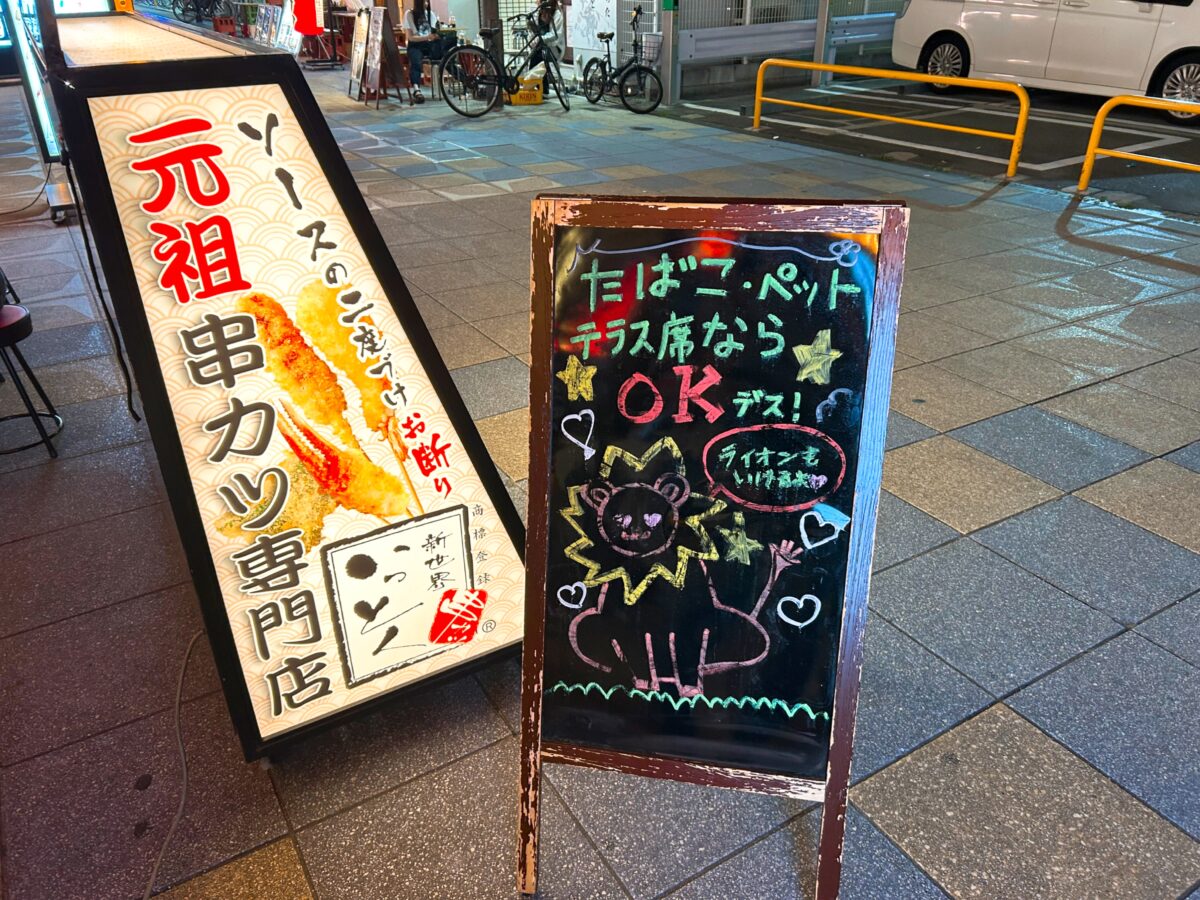 元祖串カツ専門店
ソースの二度づけお断り
新世界
いっとく
商標登録
®
たばこ・ペット
テラス席なら
OKデス!
ライオンも
いけるよ♡